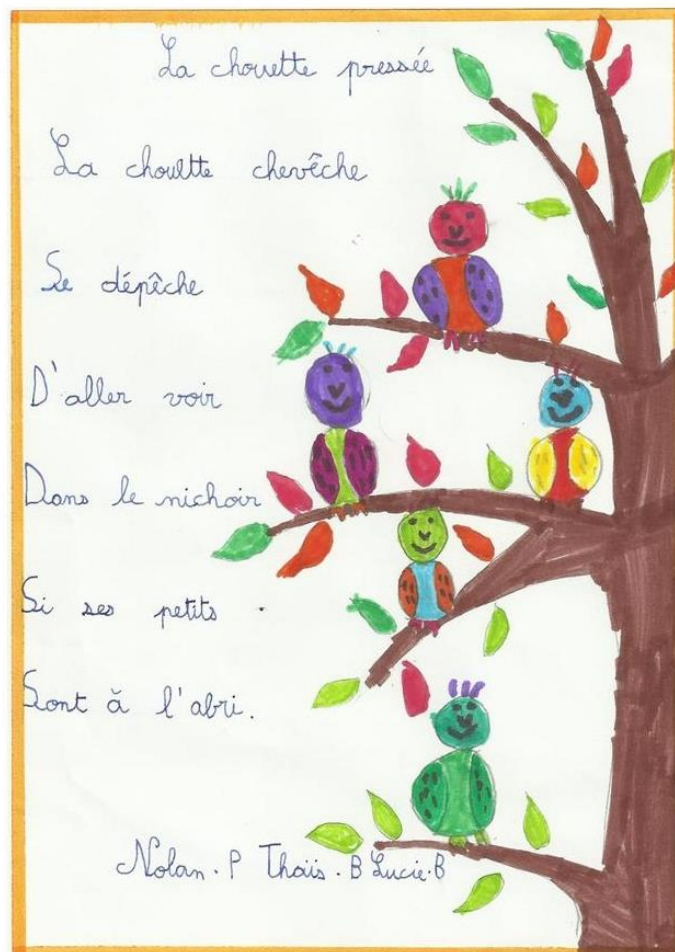 La chouette pressée
La chouette chevêche
Se dépêche
D'aller voir
Dans le nichoir
Si ses petits
Sont à l'abri.
Nolan.P Thaïs.B Lucie.B